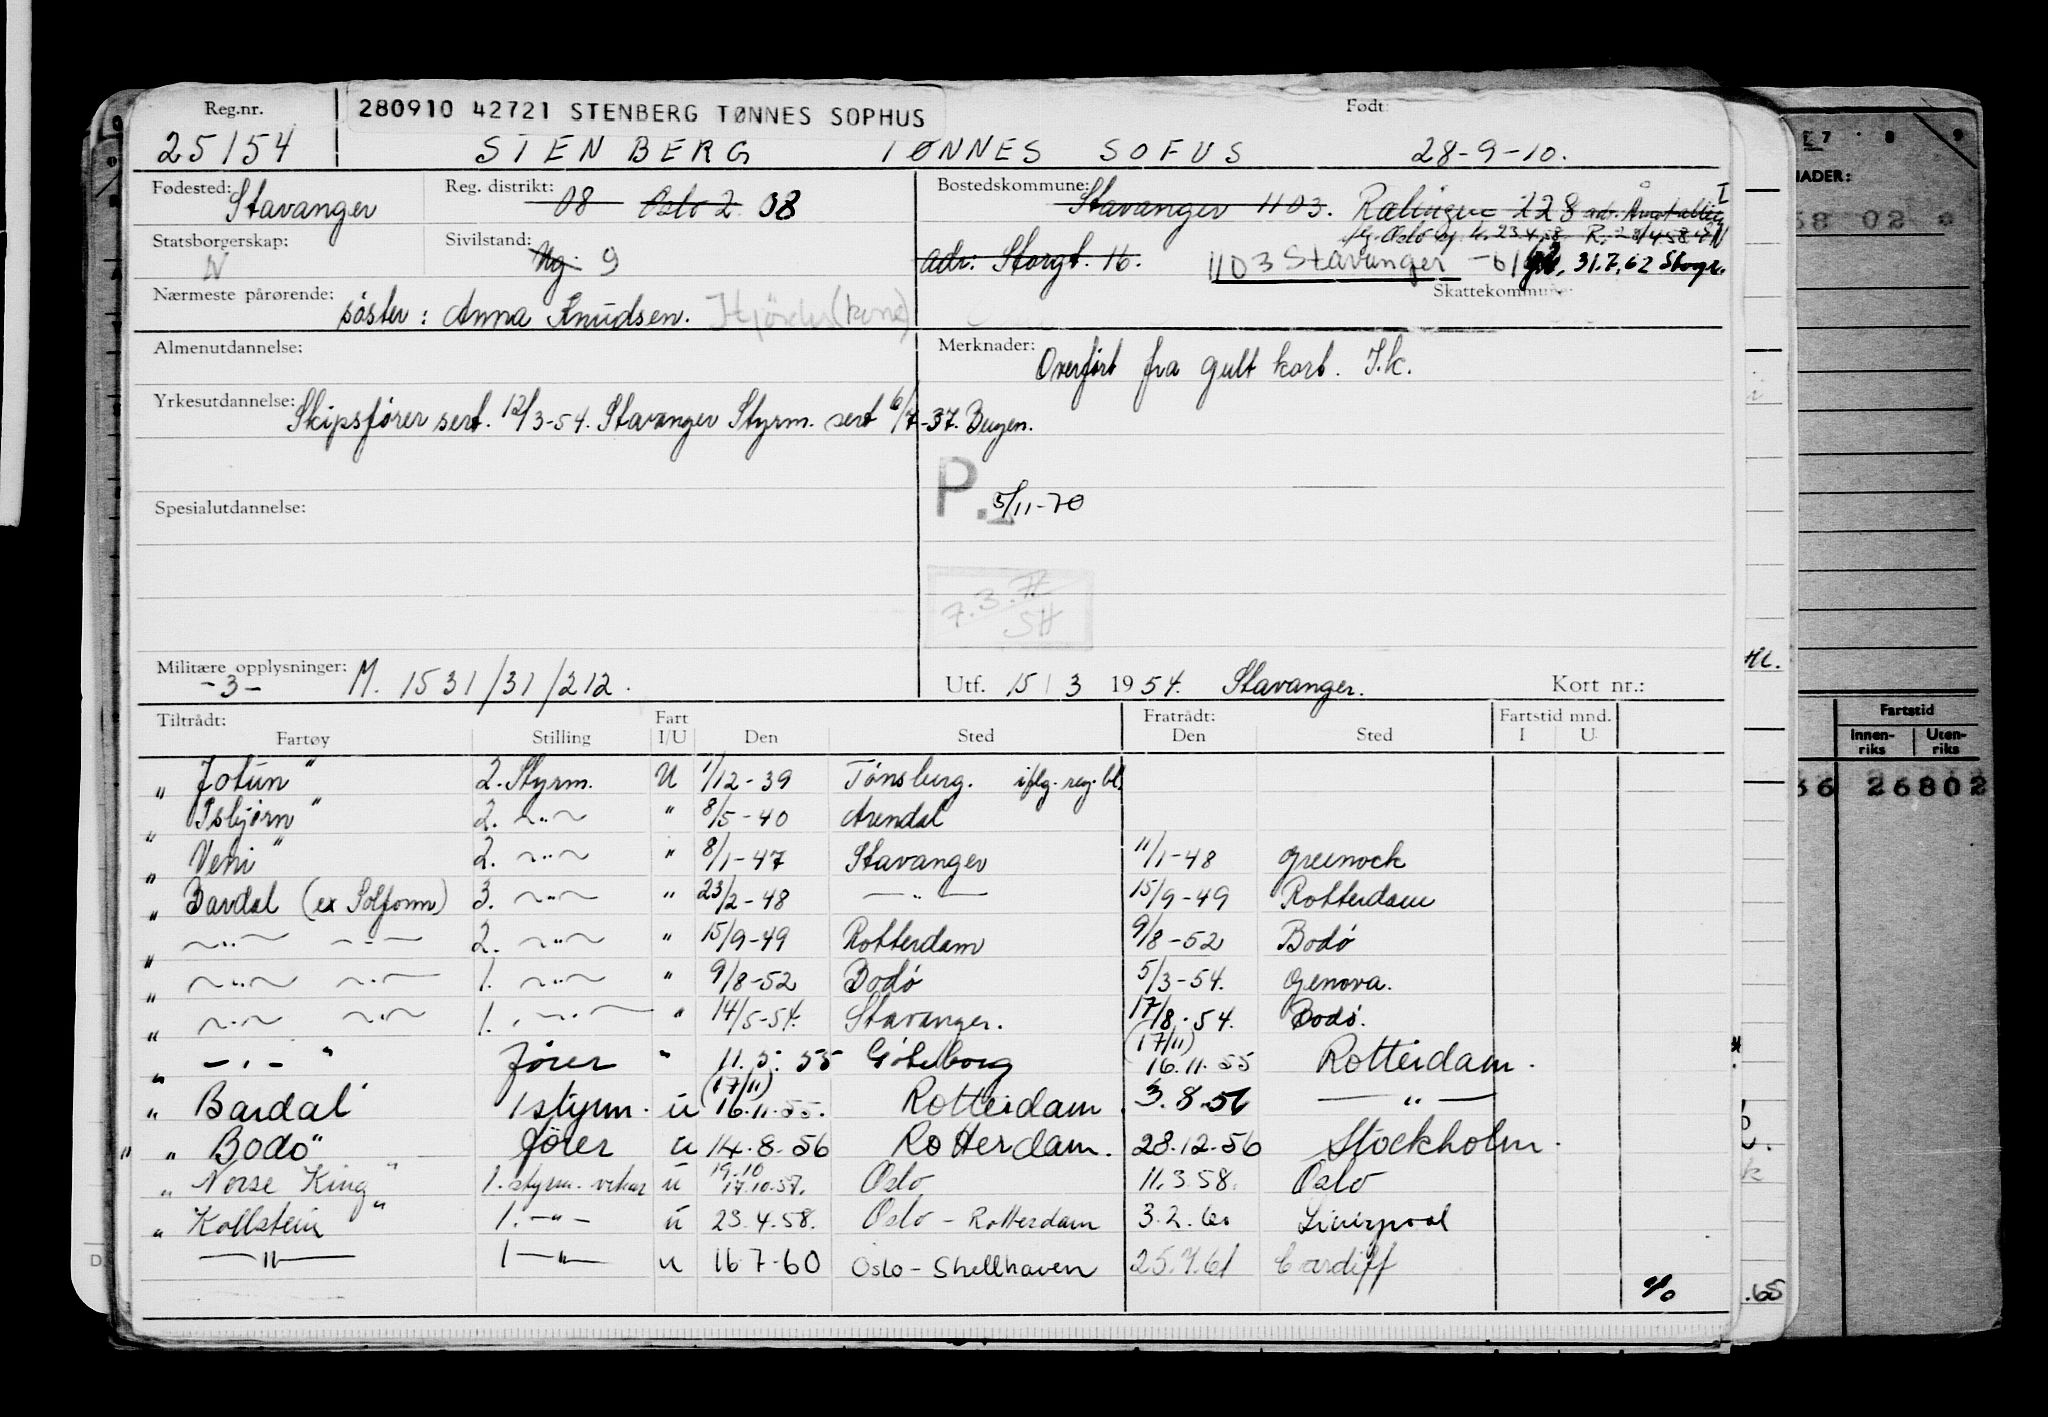 Reg.nr. 280910 42721 STENBERG TØNNES SOPHUS Født:
25154 STENBERG TØNNES SOFUS 28-9-10.
Fødested: Stavanger Reg. distrikt: 08 Oslo 2 08 Bostedskommune: Stavanger 1103. Rælingen 228
Statsborgerskap: N Sivilstand: Ug. g adr: Storgt. 16. 1103 Stavanger 31.7.62 Stvgr.
Skattekommune:
Nærmeste pårørende: søster: Anna Knudsen. Hjördis (kone)
Almenutdannelse: Merknader: Overført fra gult kort. I.k.
Yrkesutdannelse: Skipsfører sert. 12/3-54. Stavanger Styrm. sert 6/7-37. Bergen.
P. 5/11-70
Spesialutdannelse:
7.3.
SH
Militære opplysninger: -3- M. 1531/31/212. Utf. 15/3 1954. Stavanger. Kort nr.:
Tiltrådt: Fart Fratrådt: Fartstid mnd.
Fartøy Stilling I/U Den Sted Den Sted I U
"Jotun" 2. Styrm. U 1/12-39 Tønsberg. iflg. reg. bl.
"Isbjørn" 2. -"- " 8/5-40 Arendal
"Veni" 2. -"- " 8/1-47 Stavanger 11/1-48 Greenock
" Bardal (ex Solfonn) 3. -"- " 23/2-48 -"- 15/9-49 Rotterdam
" -"- -"- 2. -"- " 15/9-49 Rotterdam 9/8-52 Bodø
" -"- -"- 1. -"- " 9/8-52 Bodø 5/3-54. Genova.
" -"- -"- 1. -"- " 14/5-54. Stavanger. 17/8-54. Bodø.
" -"- " fører " 11.5.55 Göteborg (17/11) 16.11.55 Rotterdam.
" Bardal" 1 styrm. u (17/11) 16.11.55. Rotterdam. 3.8.56 -"-
" "Bodø" fører u 14.8.56 Rotterdam. 28.12.56 Stockholm.
"Norse King" 1. styrm. vikar u 19.10 17.10.57. Oslo 11.3.58. Oslo
"Kollstein" 1. -"- u 23.4.58. Oslo - Rotterdam 3.2.60 Liverpool
-"- 1 -"- u 16.7-60 Oslo - Shellhaven 25.4.61 Cardiff
7 8 9
58 02
Fartstid
Innenriks Utenriks
36 26802
.65